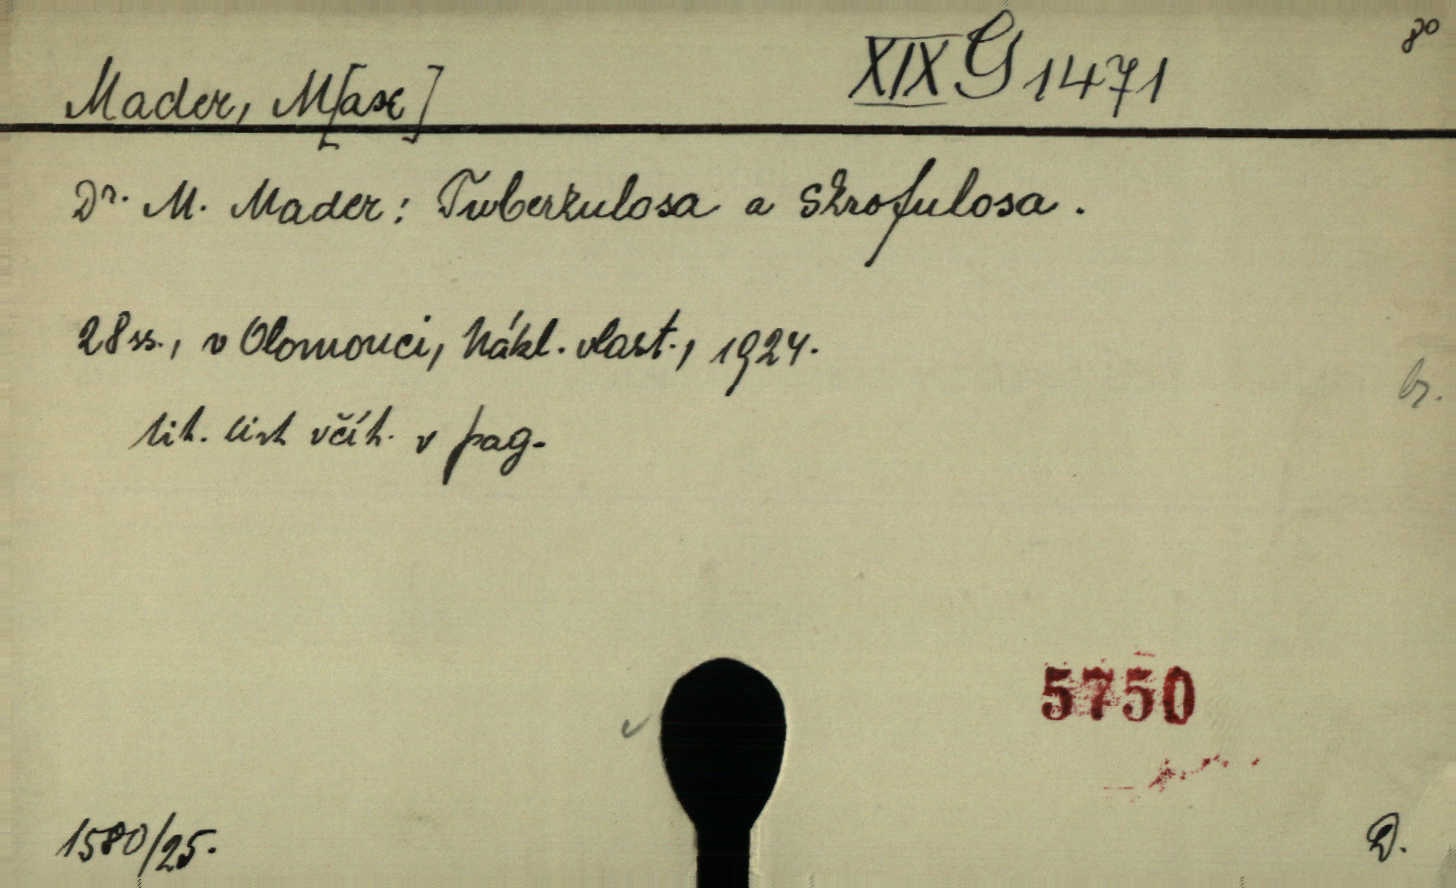 8°
XIX G 1471
Mader, M[ax]
Dr. M. Mader: Tuberkulosa a skrofulosa.
28 ss., v Olomouci, Nákl. vlast., 1924.
tit. list včít. v pag.
br.
5750
1580/25.
D.